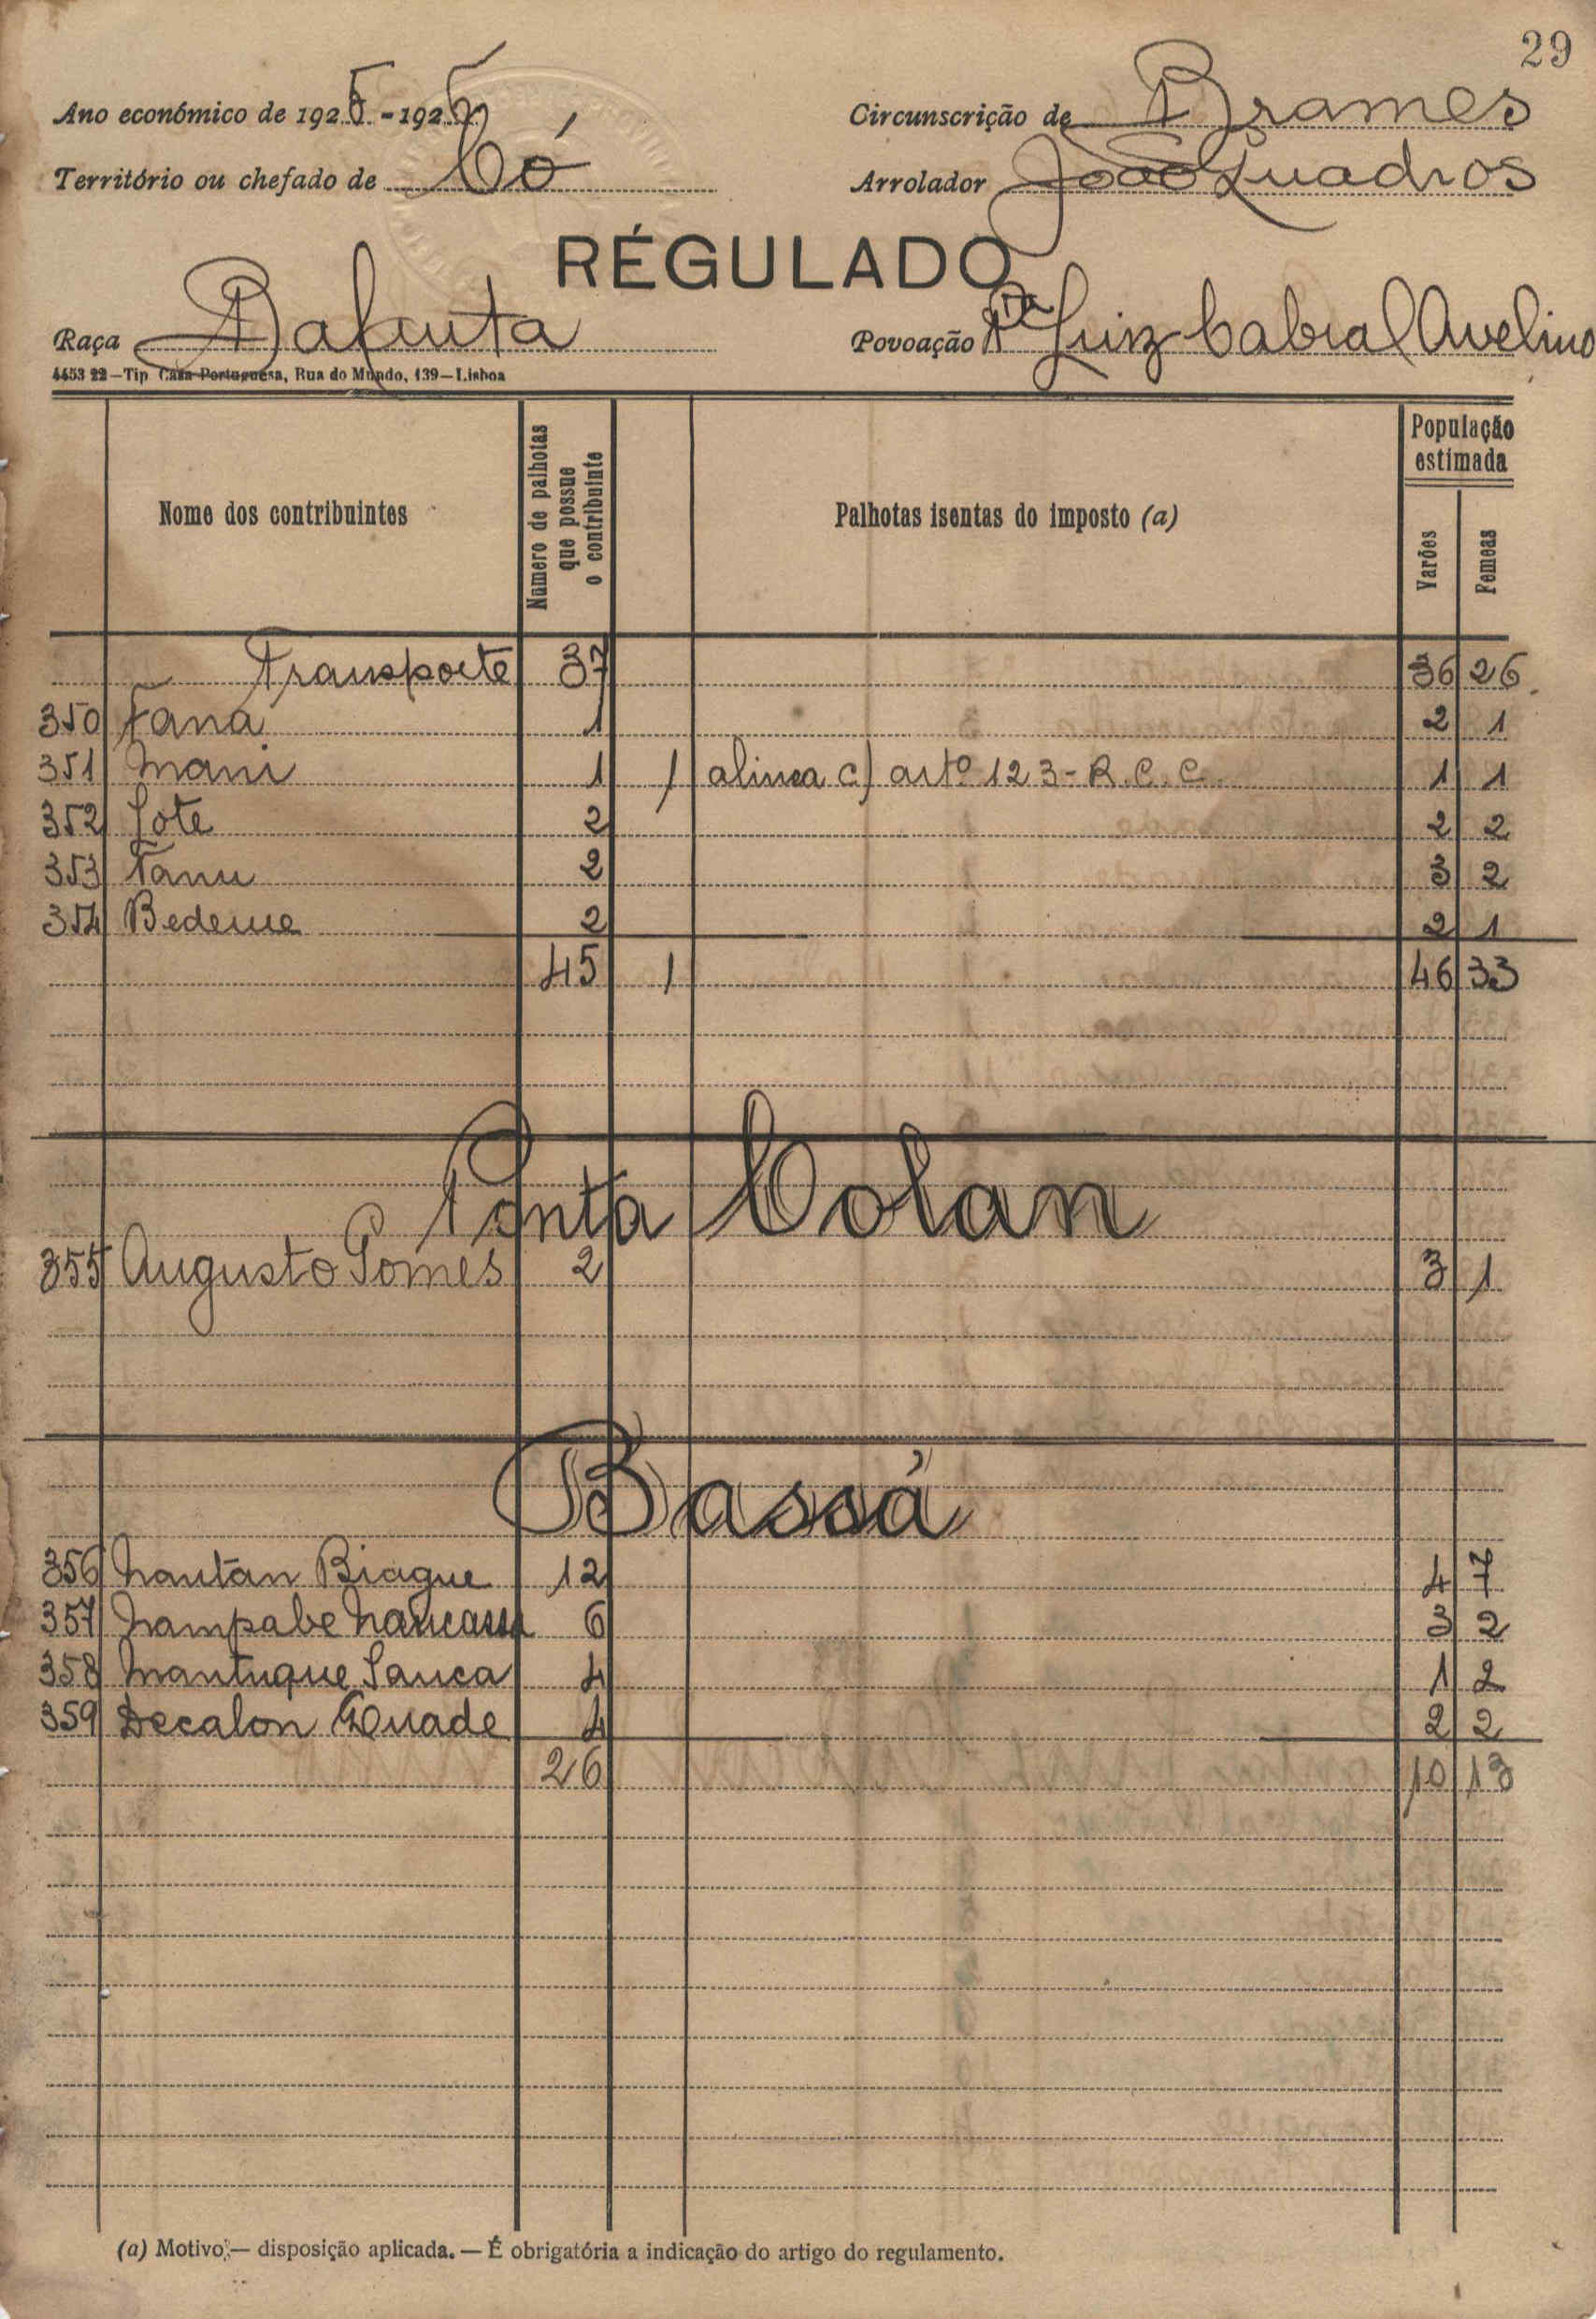 29
Ano económico de 1925-1926
Circunscrição de Brames
Território ou chefado de Có
Arrolador João Quadros
RÉGULADO
Raça Bafenta
Povoação Pta Luiz Cabral Avelino
4453 22—Tip Casa Portuguesa, Rua do Mundo, 139—Lisboa
Nome dos contribuintes
Número de palhotas que possue o contribuinte
Palhotas isentas do imposto (a)
População estimada
Varões
Femeas
Transporte 37 36 26
350 Fana 1 2 1
351 Mani 1 1 alinea c) artº 123-R.C.C. 1 1
352 Lote 2 2 2
353 Fanu 2 3 2
354 Bedeme 2 2 1
45 1 46 33
Ponta Colan
355 Augusto Gomes 2 3 1
Bassá
356 Nantan Biague 12 4 7
357 Nampabe Nancassa 6 3 2
358 Nantuque Sanca 4 1 2
359 Decalon Quade 4 2 2
26 10 13
(a) Motivo:— disposição aplicada. — É obrigatória a indicação do artigo do regulamento.